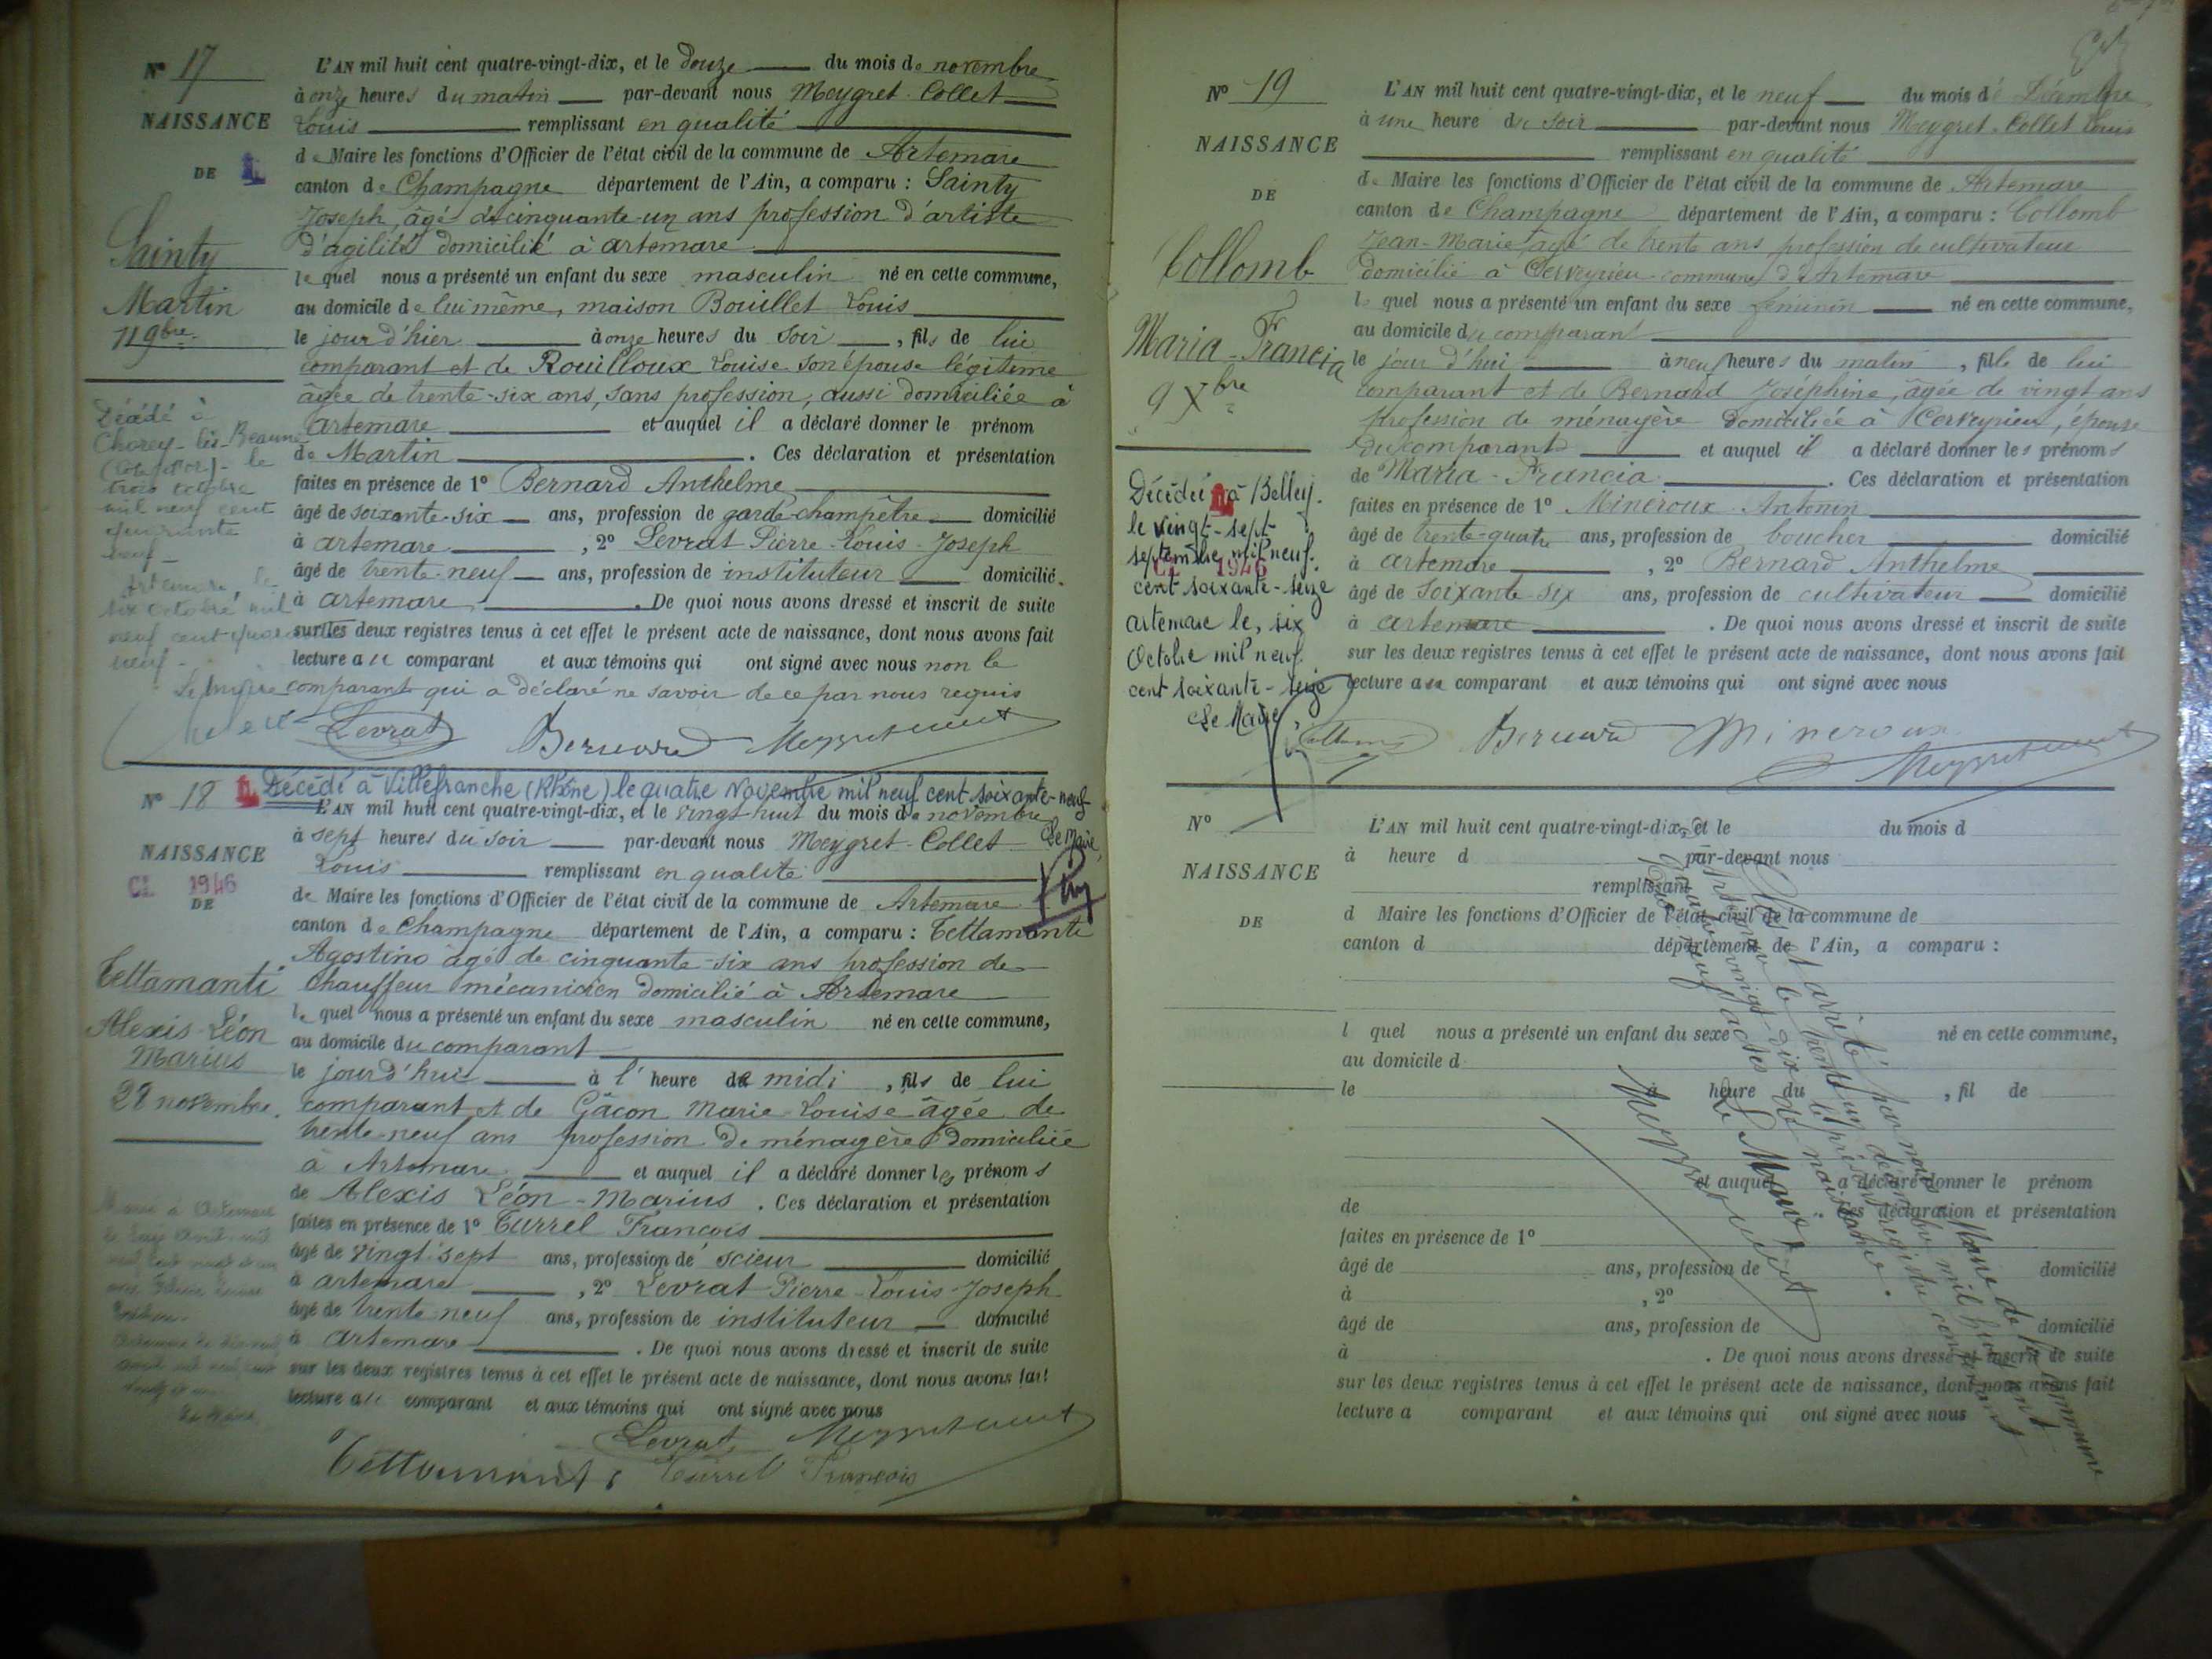 N° 17
NAISSANCE
DE
Sainty
Martin
11 9bre
L'AN mil huit cent quatre-vingt-dix, et le douze du mois de novembre
à onze heures du matin par-devant nous Meygret-Collet
Louis remplissant en qualité
de Maire les fonctions d'Officier de l'état civil de la commune de Artemare
canton de Champagne département de l'Ain, a comparu : Sainty
Joseph, âgé de cinquante-un ans profession d'artiste
d'agilité domicilié à artemare
lequel nous a présenté un enfant du sexe masculin né en cette commune,
au domicile de lui même, maison Bouillet Louis
le jour d'hier à onze heures du soir, fils de lui
comparant et de Rouilloux Louise son épouse légitime
âgée de trente-six ans, sans profession, aussi domiciliée à
artemare et auquel il a déclaré donner le prénom
de Martin. Ces déclaration et présentation
faites en présence de 1° Bernard Anthelme
âgé de soixante-six ans, profession de garde-champêtre domicilié
à artemare, 2° Levrat Pierre-Louis-Joseph
âgé de trente-neuf ans, profession de instituteur domicilié
à artemare. De quoi nous avons dressé et inscrit de suite
sur les deux registres tenus à cet effet le présent acte de naissance, dont nous avons fait
lecture au comparant et aux témoins qui ont signé avec nous non le
comparant qui a déclaré ne savoir de ce par nous requis
Levrat Bernard Meygret
Décédé à
Chorey-lès-Beaune
(Côte d'or) - le
trois octobre
mil neuf cent
quarante
neuf -
Artemare, le
six octobre mil
neuf cent quarante
neuf -
Le Maire
N° 18
Décédé à Villefranche (Rhône) le quatre Novembre mil neuf cent soixante-neuf
Le Maire,
NAISSANCE
CL 1946
DE
Tettamanti
Alexis-Léon
Marius
28 novembre.
L'AN mil huit cent quatre-vingt-dix, et le vingt-huit du mois de novembre
à sept heures du soir par-devant nous Meygret-Collet
Louis remplissant en qualité
de Maire les fonctions d'Officier de l'état civil de la commune de Artemare
canton de Champagne département de l'Ain, a comparu : Tettamanti
Agostino âgé de cinquante-six ans profession de
chauffeur mécanicien domicilié à Artemare
lequel nous a présenté un enfant du sexe masculin né en cette commune,
au domicile du comparant
le jour d'hui à l'heure de midi, fils de lui
comparant et de Gâcon Marie-Louise âgée de
trente-neuf ans profession de ménagère domiciliée
à Artemare et auquel il a déclaré donner les prénoms
de Alexis Léon-Marius. Ces déclaration et présentation
faites en présence de 1° Turrel François
âgé de vingt-sept ans, profession de scieur domicilié
à artemare, 2° Levrat Pierre-Louis-Joseph
âgé de trente-neuf ans, profession de instituteur domicilié
à artemare. De quoi nous avons dressé et inscrit de suite
sur les deux registres tenus à cet effet le présent acte de naissance, dont nous avons fait
lecture au comparant et aux témoins qui ont signé avec nous
Levrat Meygret
Tettamanti Turrel François
Le Maire
N° 19
NAISSANCE
DE
Collomb
Maria-Francia
9 Xbre
L'AN mil huit cent quatre-vingt-dix, et le neuf du mois de Décembre
à une heure du soir par-devant nous Meygret-Collet Louis
remplissant en qualité
de Maire les fonctions d'Officier de l'état civil de la commune de Artemare
canton de Champagne département de l'Ain, a comparu : Collomb
Jean-Marie âgé de trente ans profession de cultivateur
domicilié à Cerveyrieu commune d'Artemare
lequel nous a présenté un enfant du sexe féminin né en cette commune,
au domicile du comparant
le jour d'hui à neuf heures du matin, fille de lui
comparant et de Bernard Joséphine, âgée de vingt ans
profession de ménagère domiciliée à Cerveyrieu, épouse
du comparant et auquel il a déclaré donner les prénoms
de Maria-Francia. Ces déclaration et présentation
faites en présence de 1° Mineroux Antonin
âgé de trente-quatre ans, profession de boucher domicilié
à artemare, 2° Bernard Anthelme
âgé de soixante-six ans, profession de cultivateur domicilié
à artemare. De quoi nous avons dressé et inscrit de suite
sur les deux registres tenus à cet effet le présent acte de naissance, dont nous avons fait
lecture au comparant et aux témoins qui ont signé avec nous
Collomb Bernard Mineroux
Meygret
Décédée à Belley.
le vingt-sept
septembre mil neuf.
CL 1946
cent soixante-seize
artemare le, six
Octobre mil neuf
cent soixante-seize
Le Maire,
N°
NAISSANCE
DE
L'AN mil huit cent quatre-vingt-dix, et le du mois d
à heure d par-devant nous
remplissant
d Maire les fonctions d'Officier de l'état civil de la commune de
canton d département de l'Ain, a comparu :
l quel nous a présenté un enfant du sexe né en cette commune,
au domicile d
le à heure du, fil de
et auquel a déclaré donner le prénom
de Ces déclaration et présentation
faites en présence de 1°
âgé de ans, profession de domicilié
à , 2°
âgé de ans, profession de domicilié
à . De quoi nous avons dressé et inscrit de suite
sur les deux registres tenus à cet effet le présent acte de naissance, dont nous avons fait
lecture a comparant et aux témoins qui ont signé avec nous
Clos et arrêté par nous Maire de la commune
le trente un décembre mil huit cent
quatre vingt dix le présent registre contenant
dix neuf actes de naissance.
Le Maire
Meygret